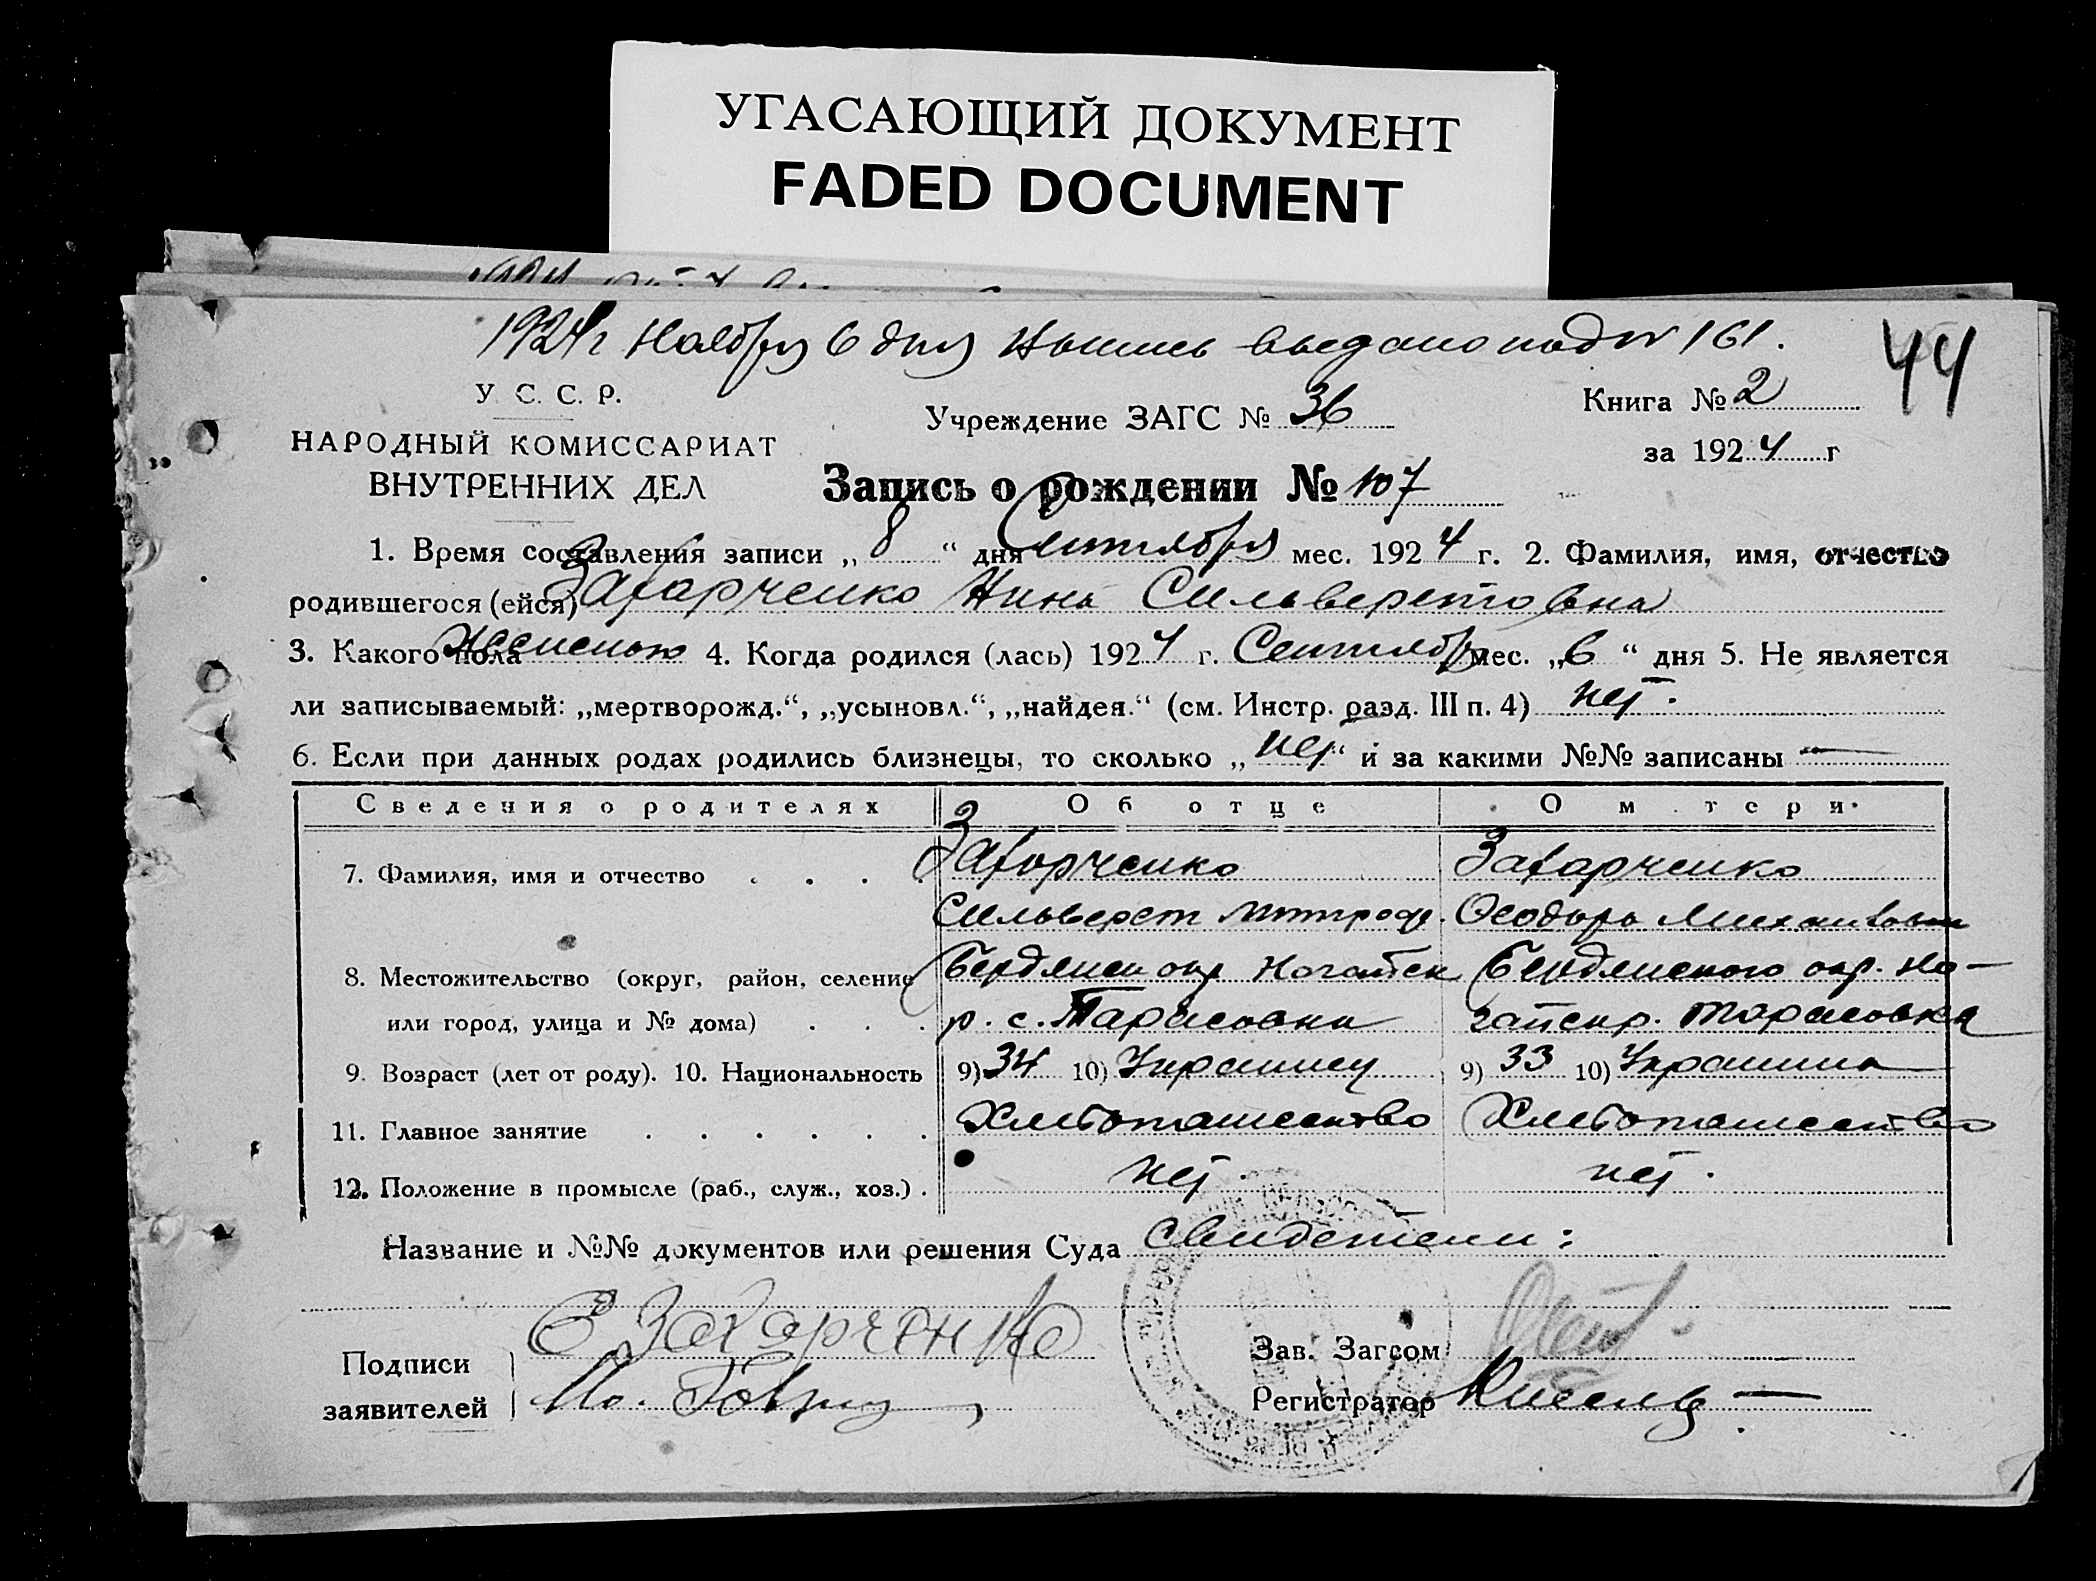 УГАСАЮЩИЙ ДОКУМЕНТ
FADED DOCUMENT
1924 г Ноября 6 дня выдано под № 161.
44
У. С. С. Р.
НАРОДНЫЙ КОМИССАРИАТ
ВНУТРЕННИХ ДЕЛ
Учреждение ЗАГС № 36
Книга № 2
за 1924 г
Запись о рождении № 107
1. Время составления записи „8“ дня Сентября мес. 1924 г. 2. Фамилия, имя, отчество
родившегося (ейся) Захарченко Нина Сильверстовна
3. Какого пола Женского 4. Когда родился (лась) 1924 г. Сентября мес. „6“ дня 5. Не является
ли записываемый: „мертворожд.“, „усыновл.“, „найден.“ (см. Инстр. разд. III п. 4) нет.
6. Если при данных родах родились близнецы, то сколько „нет“ и за какими №№ записаны —
Сведения о родителях Об отце О м тери
7. Фамилия, имя и отчество Захарченко Захарченко
Сильверст Митроф. Феодора Михайловна
8. Местожительство (округ, район, селение Бердянск окр Ногайск Бердянского окр. Но-
или город, улица и № дома) р. с. Тарасовка гайск р. Тарасовка
9. Возраст (лет от роду). 10. Национальность 9) 34 10) Украинец 9) 33 10) Украинка
11. Главное занятие Хлебопашество Хлебопашество
12. Положение в промысле (раб., служ., хоз.). нет. нет.
Название и №№ документов или решения Суда Свидетели:
Подписи
заявителей
С Захарченко
Зав. Загсом
Регистратор